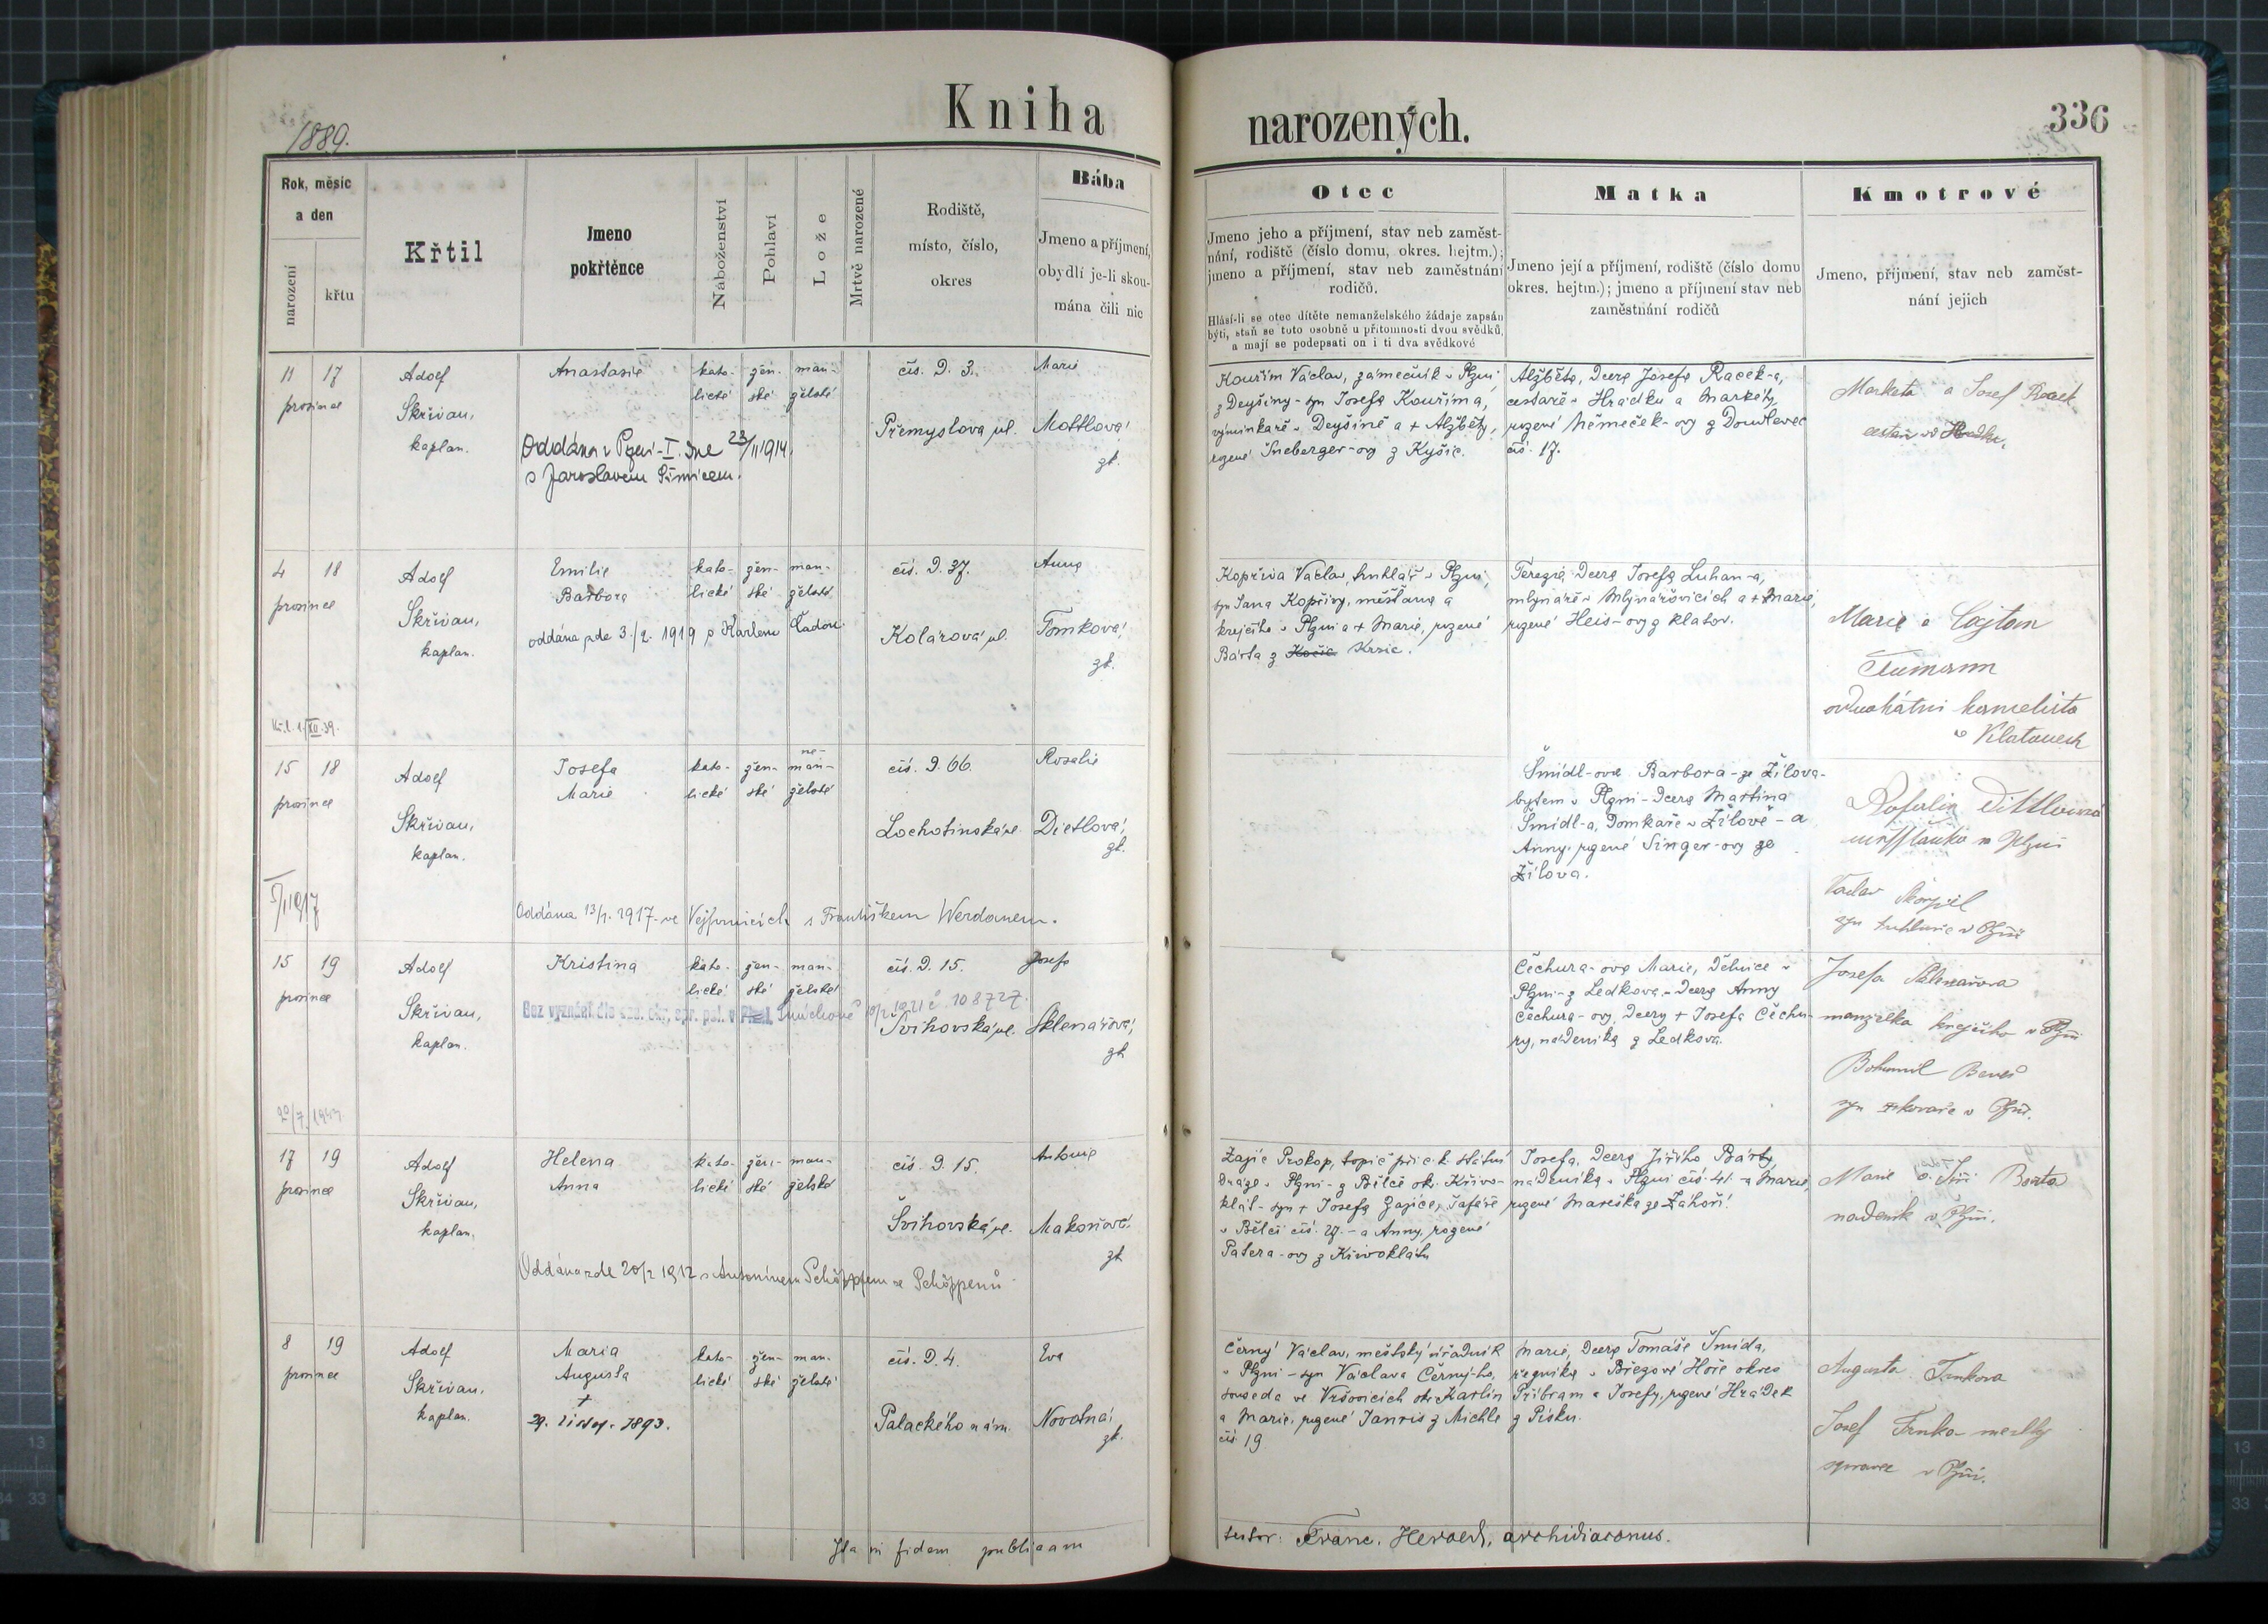 Kniha
narozených.
336
1889.
Rok, měsíc
a den
narození
křtu
Křtil
Jmeno
pokřtěnce
Náboženství
Pohlaví
Lože
Mrtvě narozené
Rodiště,
místo, číslo,
okres
Bába
Jmeno a příjmení,
obydlí je-li skou-
mána čili nic
Otec
Jmeno jeho a příjmení, stav neb zaměst-
nání, rodiště (číslo domu, okres. hejtm.);
jmeno a příjmení, stav neb zaměstnání
rodičů.
Hlásí-li se otec dítěte nemanželského žádaje zapsán
býti, staň se toto osobně u přítomnosti dvou svědků,
a mají se podepsati on i ti dva svědkové
Matka
Jmeno její a příjmení, rodiště (číslo domu
okres. hejtm.); jmeno a příjmení stav neb
zaměstnání rodičů
Kmotrové
Jmeno, příjmení, stav neb zaměst-
nání jejich
11 17
prosince
Adolf
Skřivan,
kaplan.
Anastasie
Oddána v Plzni-I. dne 23/II 1914
s Jaroslavem
kato-
lické
žen-
ské
man-
želské
čís. D. 3.
Přemyslova ul.
Marie
Mottlova,
zk.
Kouřím Václav, zámečník v Plzni
z Deyšiny - syn Josefa Kouříma,
výminkáře v Deyšině a + Alžběty,
rozené Šneberger-ovy z Kyšic.
Alžběta, dcera Josefa Racek-a,
cestáře v Hrádku a Markéty,
rozené Němeček-ovy z Doudlevec
čís. 17.
Marketa a Josef Racek
cestář v Hrádku.
4 18
prosince
Adolf
Skřivan,
kaplan.
Emilie
Barbora
oddána zde 3./2. 1919 s Karlem Čadou
kato-
lické
žen-
ské
man-
želské
čís. D. 37.
Kolárova ul.
Anna
Tomková,
zk.
Kopřiva Václav, truhlář v Plzni,
syn Jana Kopřivy, měšťana a
krejčího v Plzni a + Marie, rozené
Bárta z Kočic Krsic.
Terezie, dcera Josefa Luhan-a,
mlynáře v Mlynářovicích a + Marie,
rozené Heis-ovy z Klatov.
Marie a Cajtan
advokátní kancelista
v Klatovech
XII. 39.
15 18
prosince
Adolf
Skřivan,
kaplan.
Josefa
Marie
kato-
lické
žen-
ské
ne-
man-
želské
čís. D. 66.
Lochotínská ul.
Rosalie
Dietlova,
zk.
Šmídl-ova Barbora - ze Žilova -
bytem v Plzni - dcera Martina
Šmídl-a, domkáře v Žilově - a
Anny, rozené Singer-ovy ze
Žilova.
Rosalia Dittlowa
v Plzni
Václav Skorpil
syn truhláře v Plzni
Oddána 13/1. 1917 ve Vejprnicích s Františkem Werdanem.
15 19
prosince
Adolf
Skřivan,
kaplan.
Kristina
kato-
lické
žen-
ské
man-
želské
Bez vyznání dle
Smíchově 10/2 1921 č. 108727.
čís. D. 15.
Švihovská ul.
Josefa
Sklenářová,
zk
Čechura-ova Marie, dělnice v
Plzni - z Ledkova - dcera Anny
Čechura-ovy, dcery + Josefa Čechu-
ry, nádeníka z Ledkova.
Josefa Sklenářova
manželka krejčího v Plzni
Bohumil Beneš
syn v Plzni.
20/7.
17 19
prosince
Adolf
Skřivan,
kaplan.
Helena
Anna
kato-
lické
žen-
ské
man-
želské
čís. D. 15.
Švihovská ul.
Antonie
Makoňová
zk
Oddána zde 20/2 1912 s Antonínem Schöppem
Zajíc Prokop, topič při c. k. státní
dráze v Plzni - z Bělče ok. Křivo-
klát - syn + Josefa Zajíce, šafáře
v Bělči čís. 27. - a Anny, rozené
Patera-ovy z Křivoklátu
Josefa, dcera Jiřího Bárty,
nádeníka v Plzni čís. 41. a Marie,
rozené Mareška ze Záhoří.
Marie a Jiří Barta
nadeník v Plzni.
8 19
prosince
Adolf
Skřivan,
kaplan.
Maria
Augusta
+
29. listop. 1893.
kato-
lické
žen-
ské
man-
želské
čís. D. 4.
Palackého nám.
Eva
Novotná,
zk.
Černý Václav, městský úředník
v Plzni - syn Václava Černý-ho,
souseda ve Vršovicích okr. Karlín
a Marie, rozené Janris z Michle
čís. 19
Marie, dcera Tomáše Šmída,
řezníka v Březové Hoře okres
Příbram a Josefy, rozené Hrádek
z Písku.
Augusta Trnkova
Josef Trnka
správce v Plzni.
Ita in fidem publicam
testor: Franc. Herold, archidiaconus.